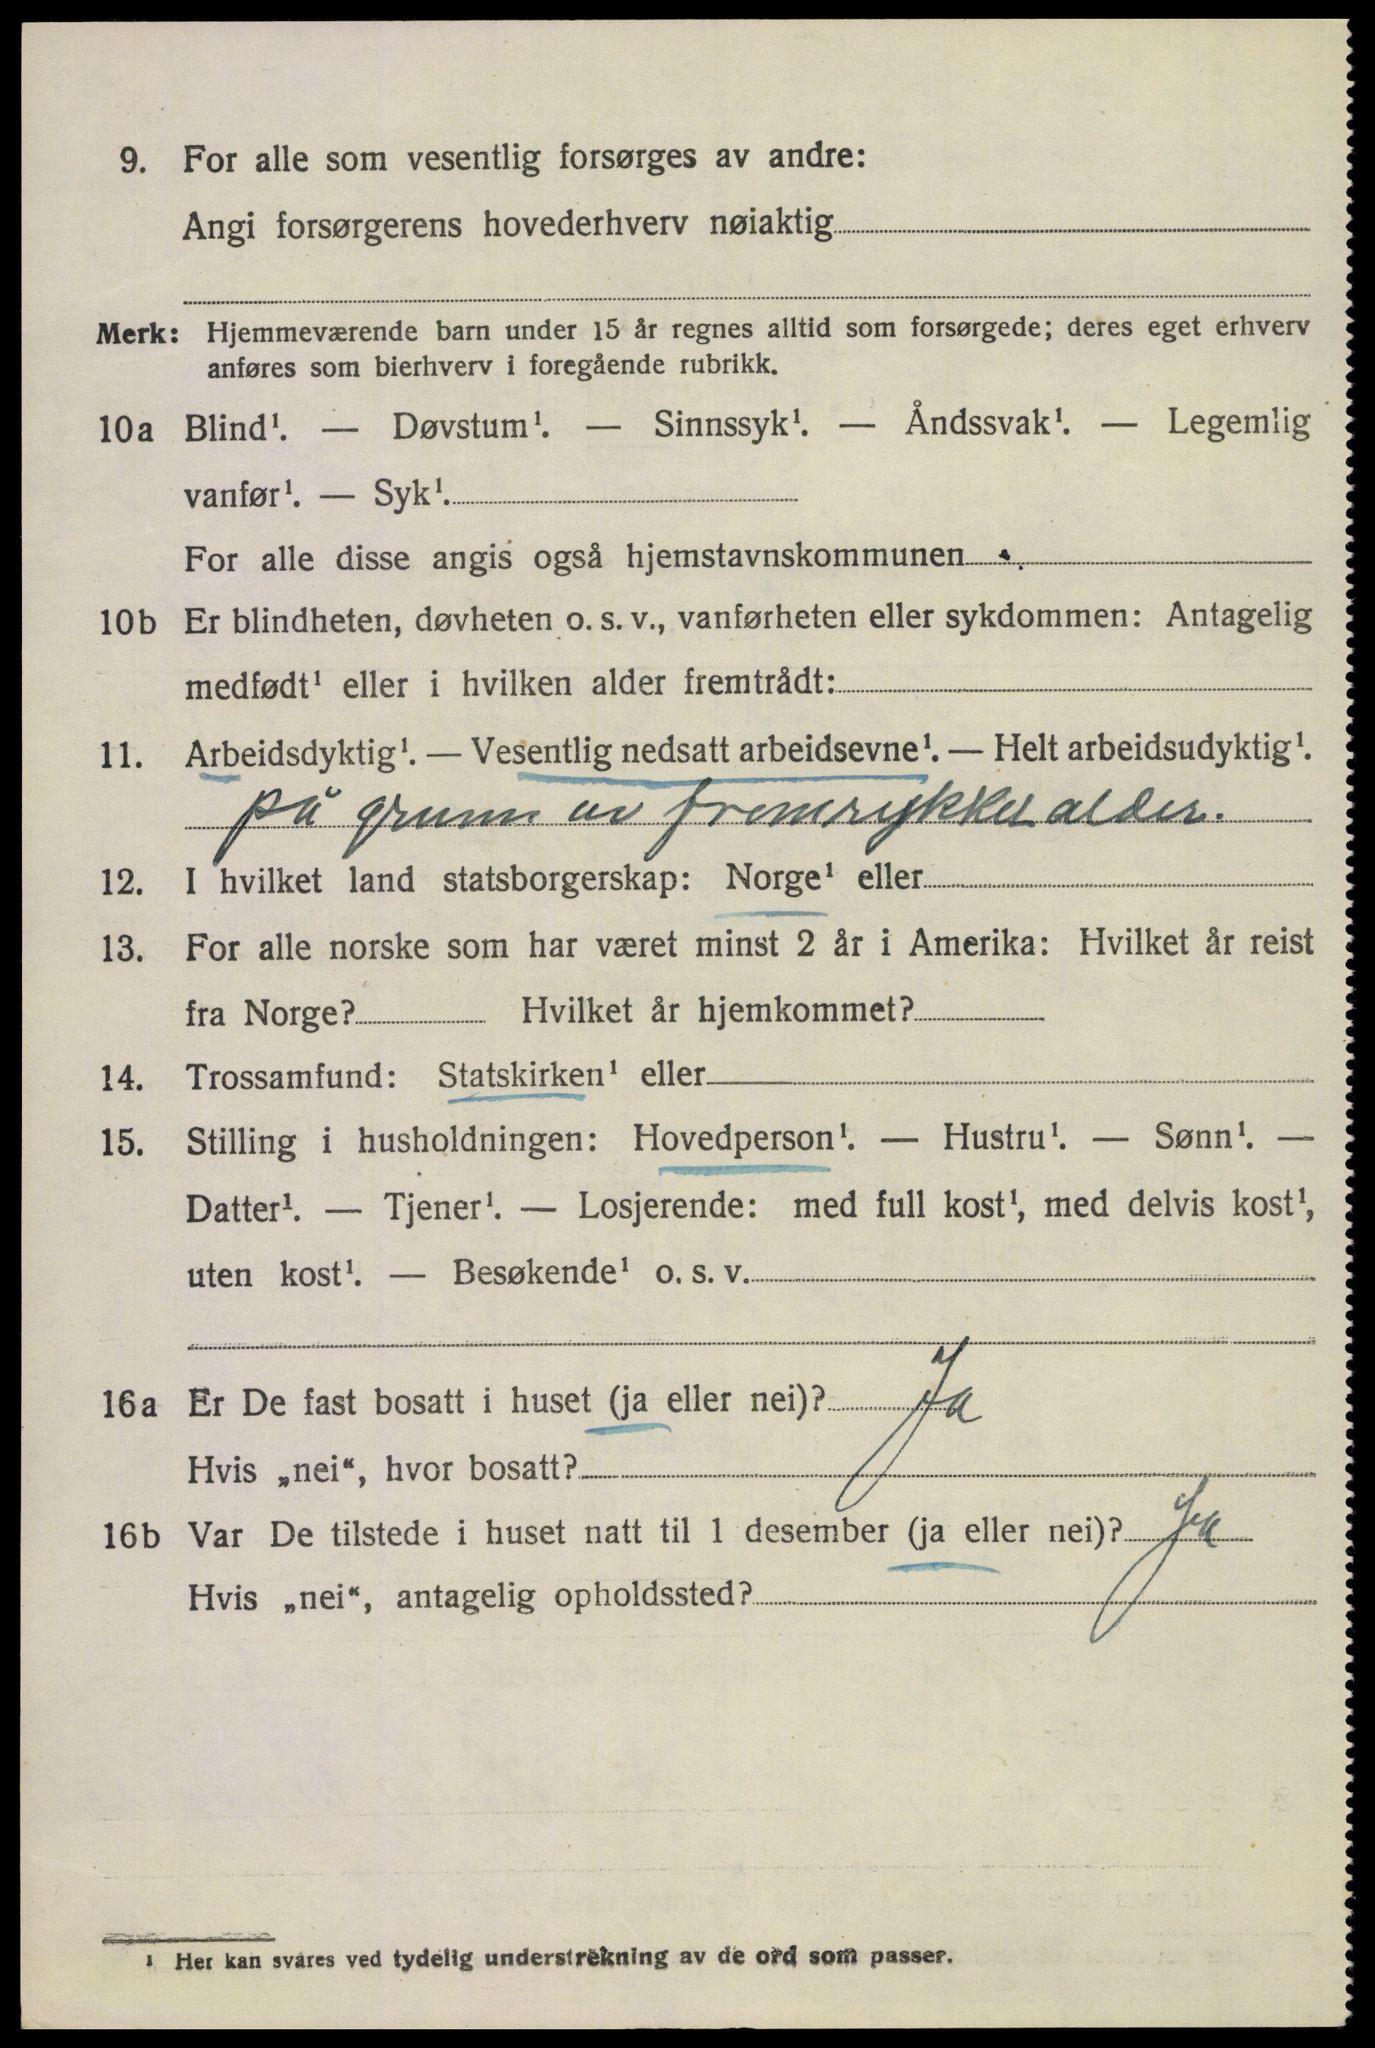 9. For alle som vesentlig forsørges av andre:
Angi forsørgerens hovederhverv nøiaktig
Merk: Hjemmeværende barn under 15 år regnes alltid som forsørgede; deres eget erhverv
anføres som bierhverv i foregående rubrikk.
10a Blind¹. — Døvstum¹. — Sinnssyk¹. — Åndssvak¹. — Legemlig
vanfør¹. — Syk¹.
For alle disse angis også hjemstavnskommunen
10b Er blindheten, døvheten o. s. v., vanførheten eller sykdommen: Antagelig
medfødt¹ eller i hvilken alder fremtrådt:
11. Arbeidsdyktig¹. — Vesentlig nedsatt arbeidsevne¹. — Helt arbeidsudyktig¹.
på grunn av fremrykket alder.
12. I hvilket land statsborgerskap: Norge¹ eller
13. For alle norske som har været minst 2 år i Amerika: Hvilket år reist
fra Norge? Hvilket år hjemkommet?
14. Trossamfund: Statskirken¹ eller
15. Stilling i husholdningen: Hovedperson¹. — Hustru¹. — Sønn¹. —
Datter¹. — Tjener¹. — Losjerende: med full kost¹, med delvis kost¹,
uten kost¹. — Besøkende¹ o. s. v.
16a Er De fast bosatt i huset (ja eller nei)? Ja
Hvis „nei“, hvor bosatt?
16b Var De tilstede i huset natt til 1 desember (ja eller nei)? Ja
Hvis „nei“, antagelig opholdssted?
¹ Her kan svares ved tydelig understrekning av de ord som passer.